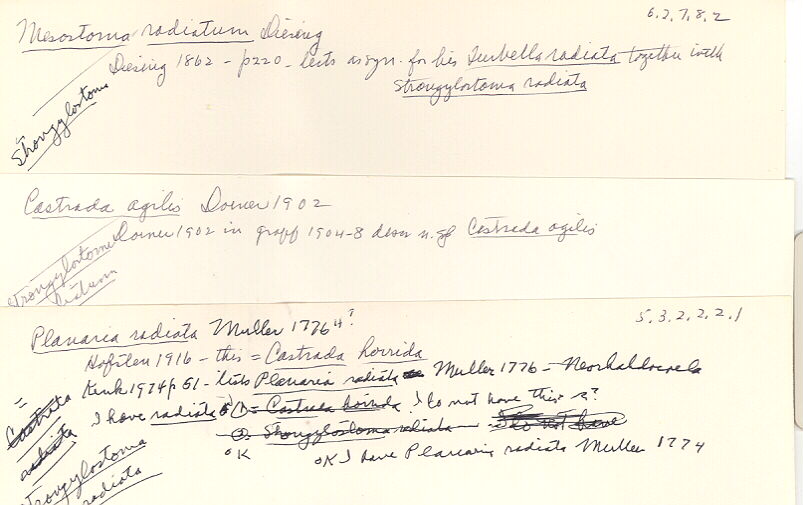 6.2.7.8.2
Mesostoma radiatum Diesing
Diesing 1862 - p220 - lists as syn. for his Turbella radiata together with
Strongylostoma radiata
= Strongylostoma
Castrada agilis Dorner 1902
Dorner 1902 in Graff 1904-8 descr n.sp Castrada agilis
Strongylostoma
5.3.2.2.2.1
Planaria radiata Muller 1776 4?
Hofsten 1916 - this = Castrada horrida
Kenk 1974 p 61 - lists Planaria radiata Muller 1776 - Neorhabdocoela
I have radiata ① = Castrada horrida. I do not have this is?
② Strongylostoma radiata - I do not have
OK OK I have Planaria radiata Muller 1774
= Castrada
radiata
Strongylostoma
radiata